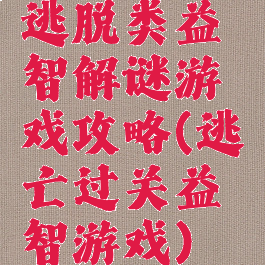 逃脱类益
智解谜游
戏攻略(逃
亡过关益
智游戏)